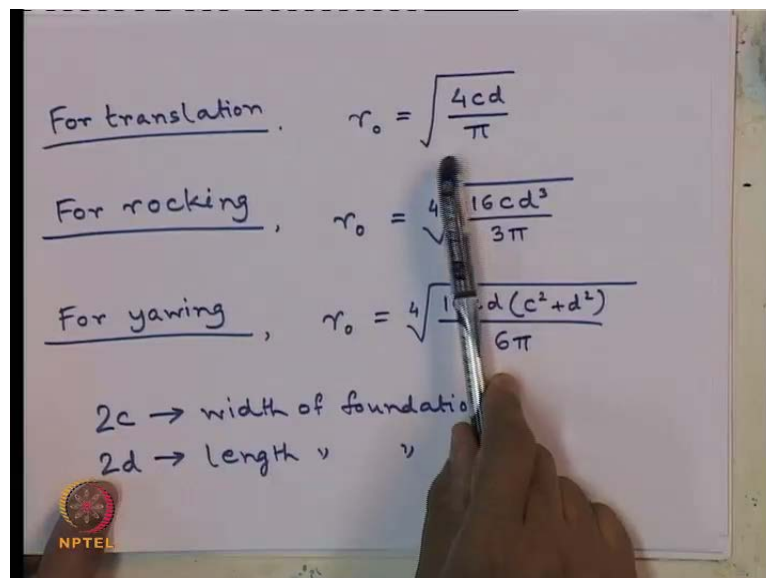 For translation. r₀ = √(4cd/π)
For rocking, r₀ = ⁴√(16cd³/3π)
For yawing, r₀ = ⁴√(1 cd(c²+d²)/6π)
2c → width of foundatio
2d → length " "
NPTEL